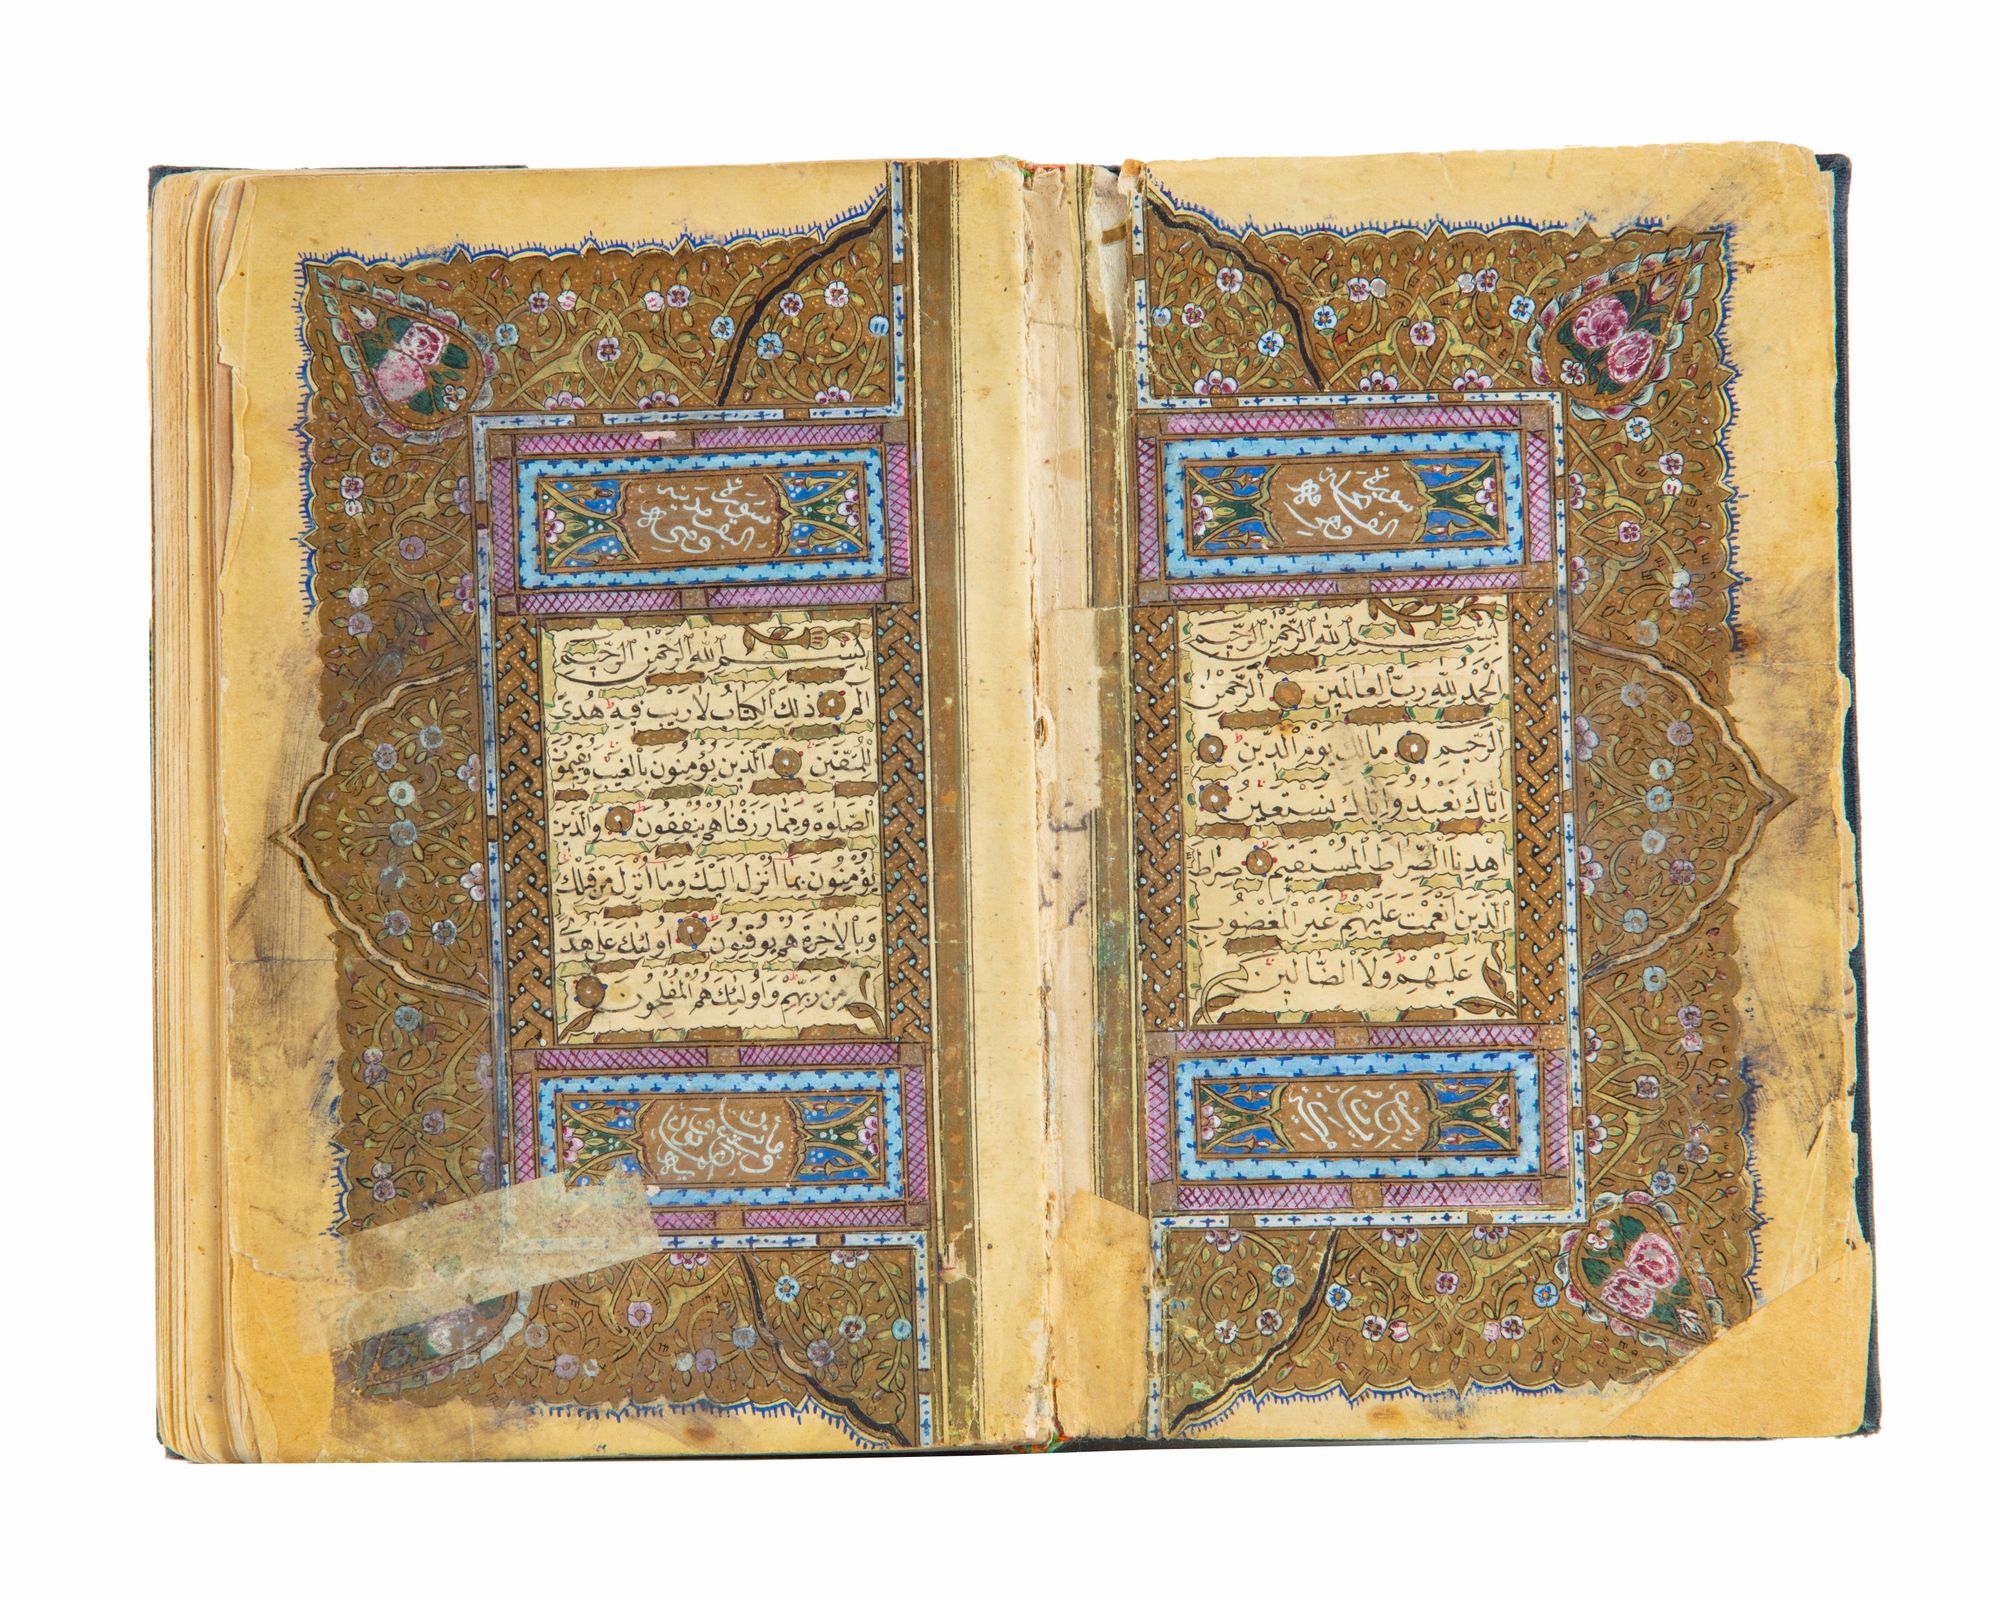 سورة
الفاتحة وهي
بسم الله الرحمن الرحيم
الحمد لله رب العالمين الرحمن
الرحيم مالك يوم الدين
اياك نعبد واياك نستعين
اهدنا الصراط المستقيم صراط
الذين انعمت عليهم غير المغضوب
عليهم ولا الضالين
سورة مدنية
البقرة وهي
بسم الله الرحمن الرحيم
الم ذلك الكتاب لا ريب فيه هدى
للمتقين الذين يؤمنون بالغيب ويقيمون
الصلوة ومما رزقناهم ينفقون والذين
يؤمنون بما أنزل اليك وما أنزل من قبلك
وبالاخرة هم يوقنون اولئك على هدى
من ربهم واولئك هم المفلحون